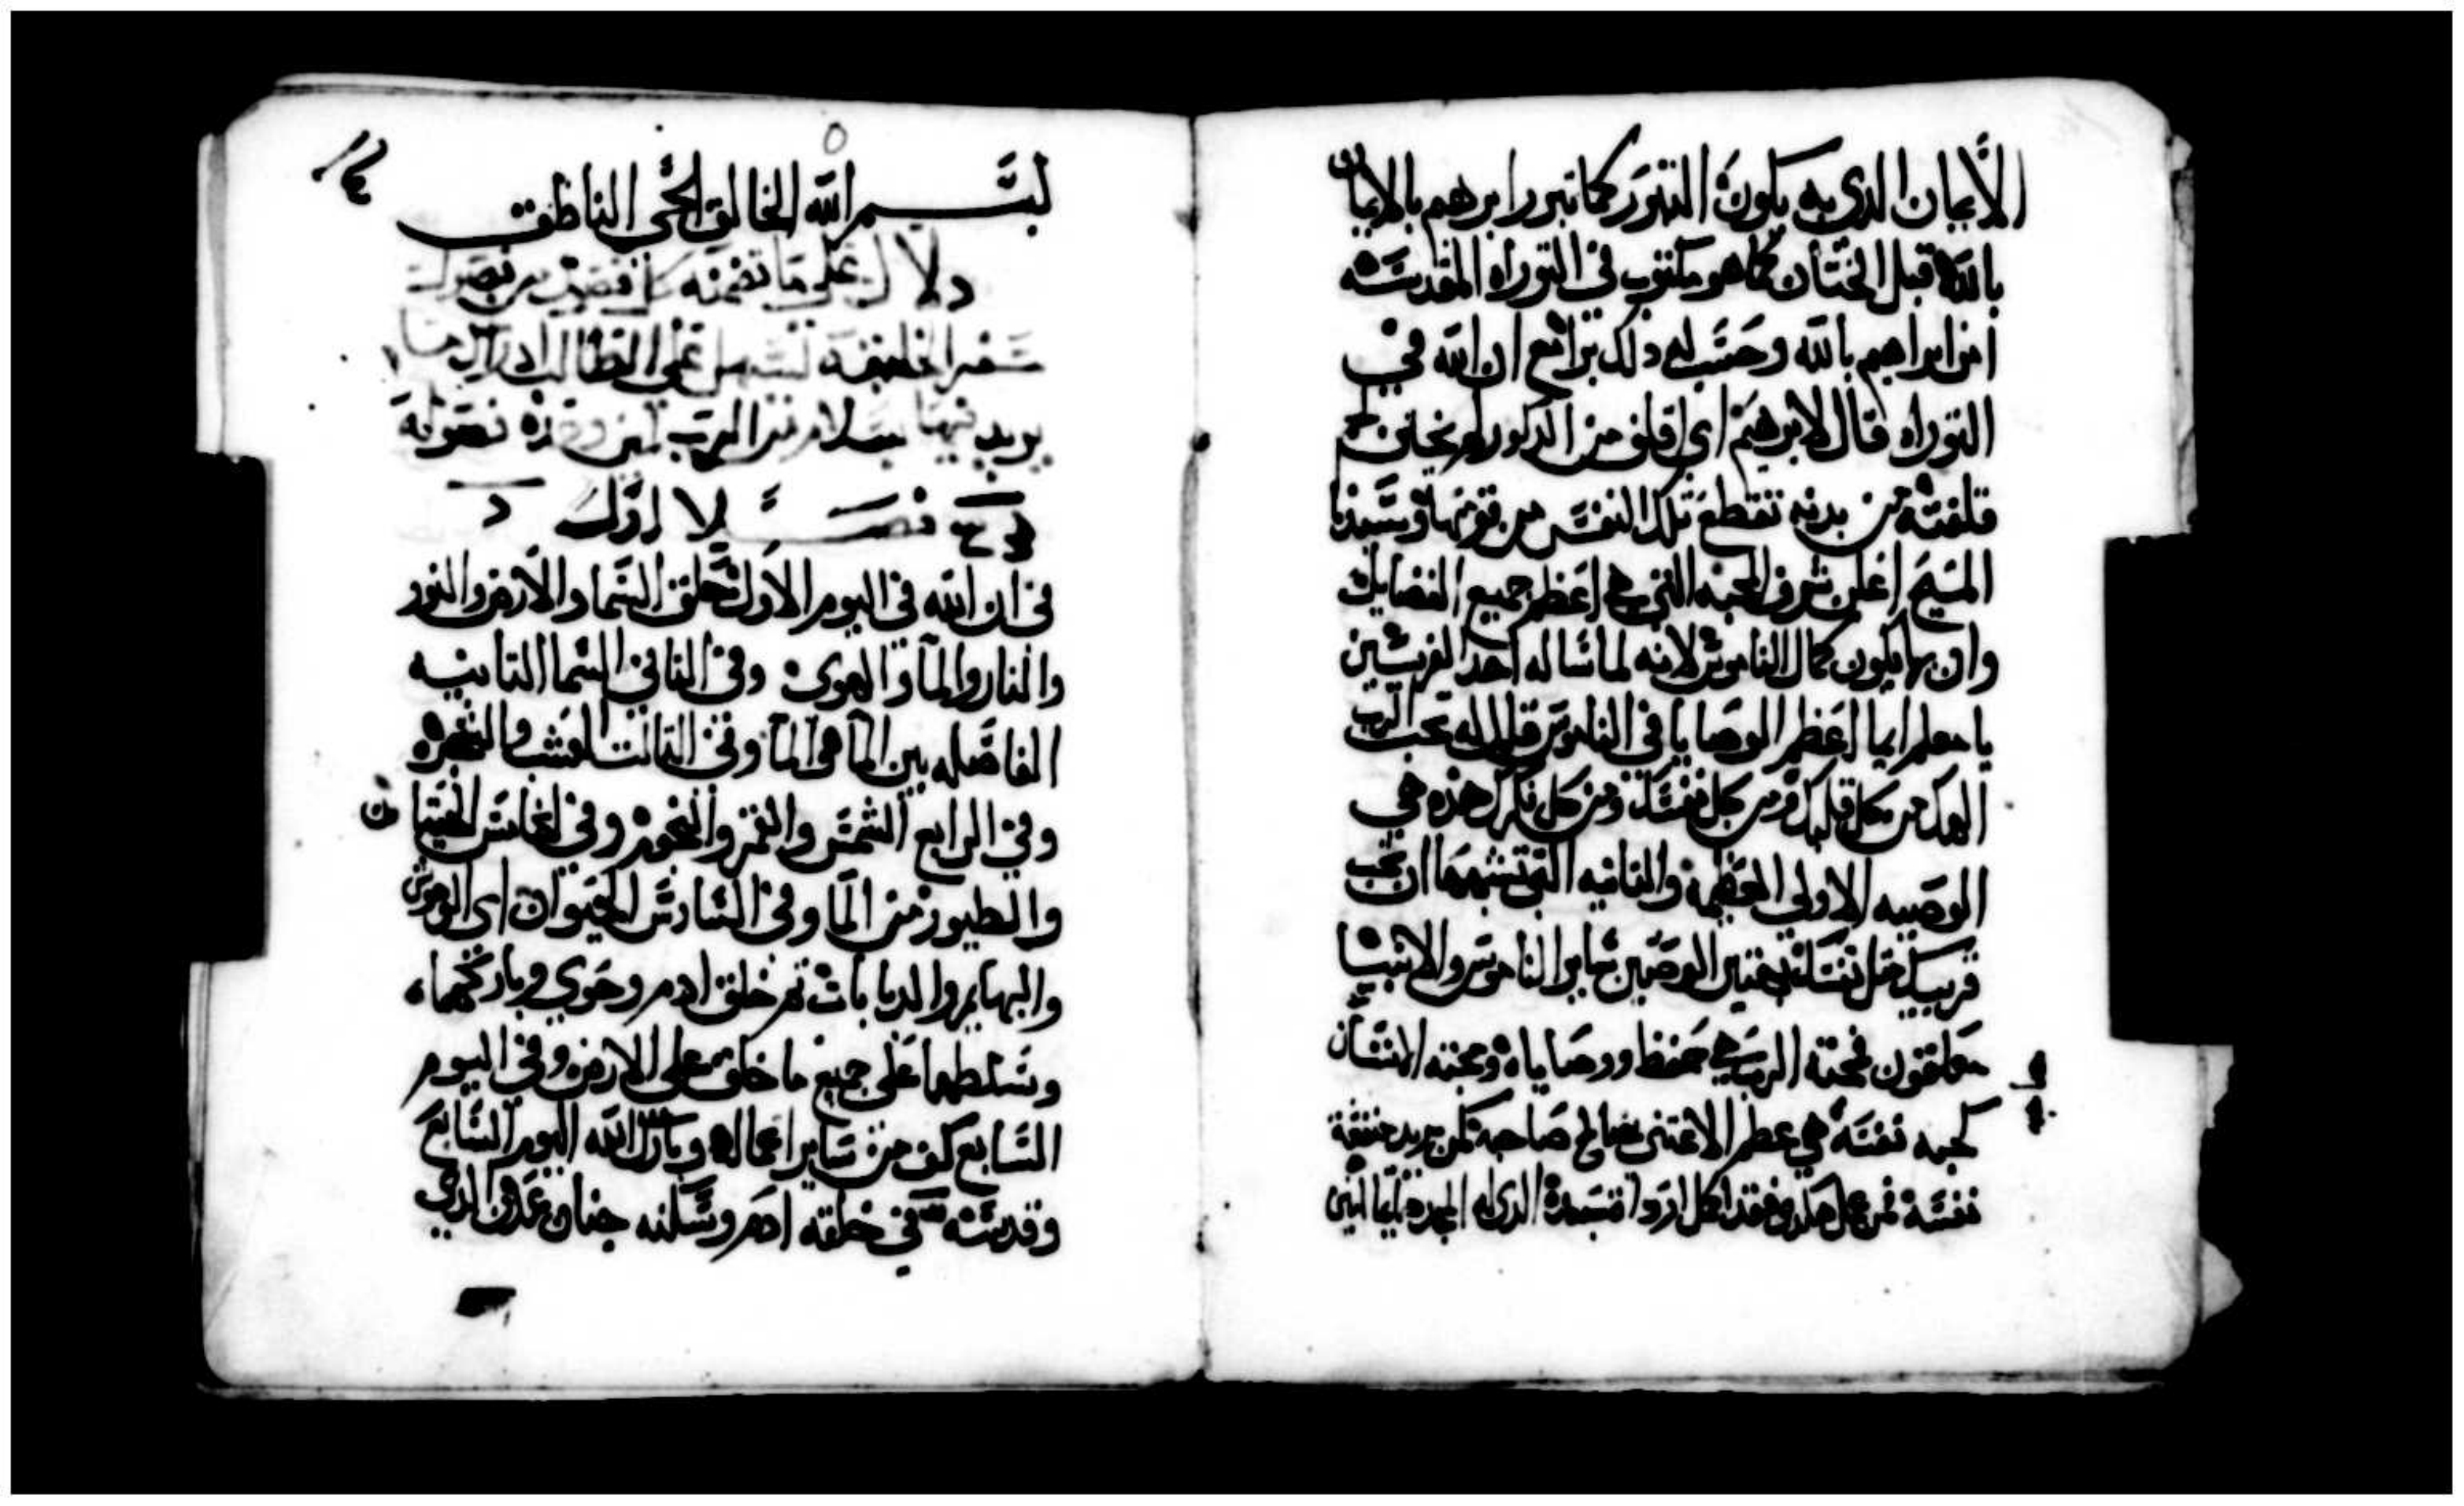 الأيمان الدي به يكون التبرر كما تبرر ابرهيم بالايمان
بالله قبل الختان كما هو مكتوب في التوراه المقدسه
امن ابراهيم بالله وحسب له دلك برا مع ان الله في
التوراه قال لابرهيم اي اقلف من الدكور لم يختن لحم
قلفته من بدنه تنقطع تلك النفس من قومها وسيدنا
المسيح اعلن شرف المحبه التي هي اعظم جميع الفضايل
وان بها يكون كمال الناموس لانه لما ساله احد الفريسين
يا معلم ايما اعظم الوصايا في الناموس قال له تحب الرب
الهك من كل قلبك ومن كل نفسك ومن كل فكرك هذه هي
الوصيه الاولي العظيمة والتانيه التي تشبهها ان تحب
قريبك متل نفسك بهتين الوصيتين ساير الناموس والانبيا
معلقون فمحبة الرب هي حفظ ووصاياه ومحبته الانسان
كحبه نفسه هي عظم الاعتنى بصالح صاحبه كمن يريد منفعة
نفسه فمن عمل هكدي فقد اكمل
بسم الله الخالق الحي الناطق
دلال علي ما تضمنه كل فصل من فصول
سفر الخليقة ليسهل علي الطالب ادراك ما
يريد فيها بسلام من الرب امين
فصل الاول
في ان الله في اليوم الاول خلق السما والارض والنور
والنار والما والهوي وفي التاني السما التانيه
الفاصله بين الما والما وفي التالت العشب والشجره
وفي الرابع الشمس والقمر والنجوم وفي الخامس الحيتان
والطيور من الما وفي السادس الحيوان اي الوحوش
والبهايم والدبابات تم خلق ادم وحوي وباركهما
وسلطهما علي جميع ما خلق علي الارض وفي اليوم
السابع كف من ساير اعماله وبارك الله اليوم السابع
وقدسه في خلقه ادم وسكنه جنان عدن الدي